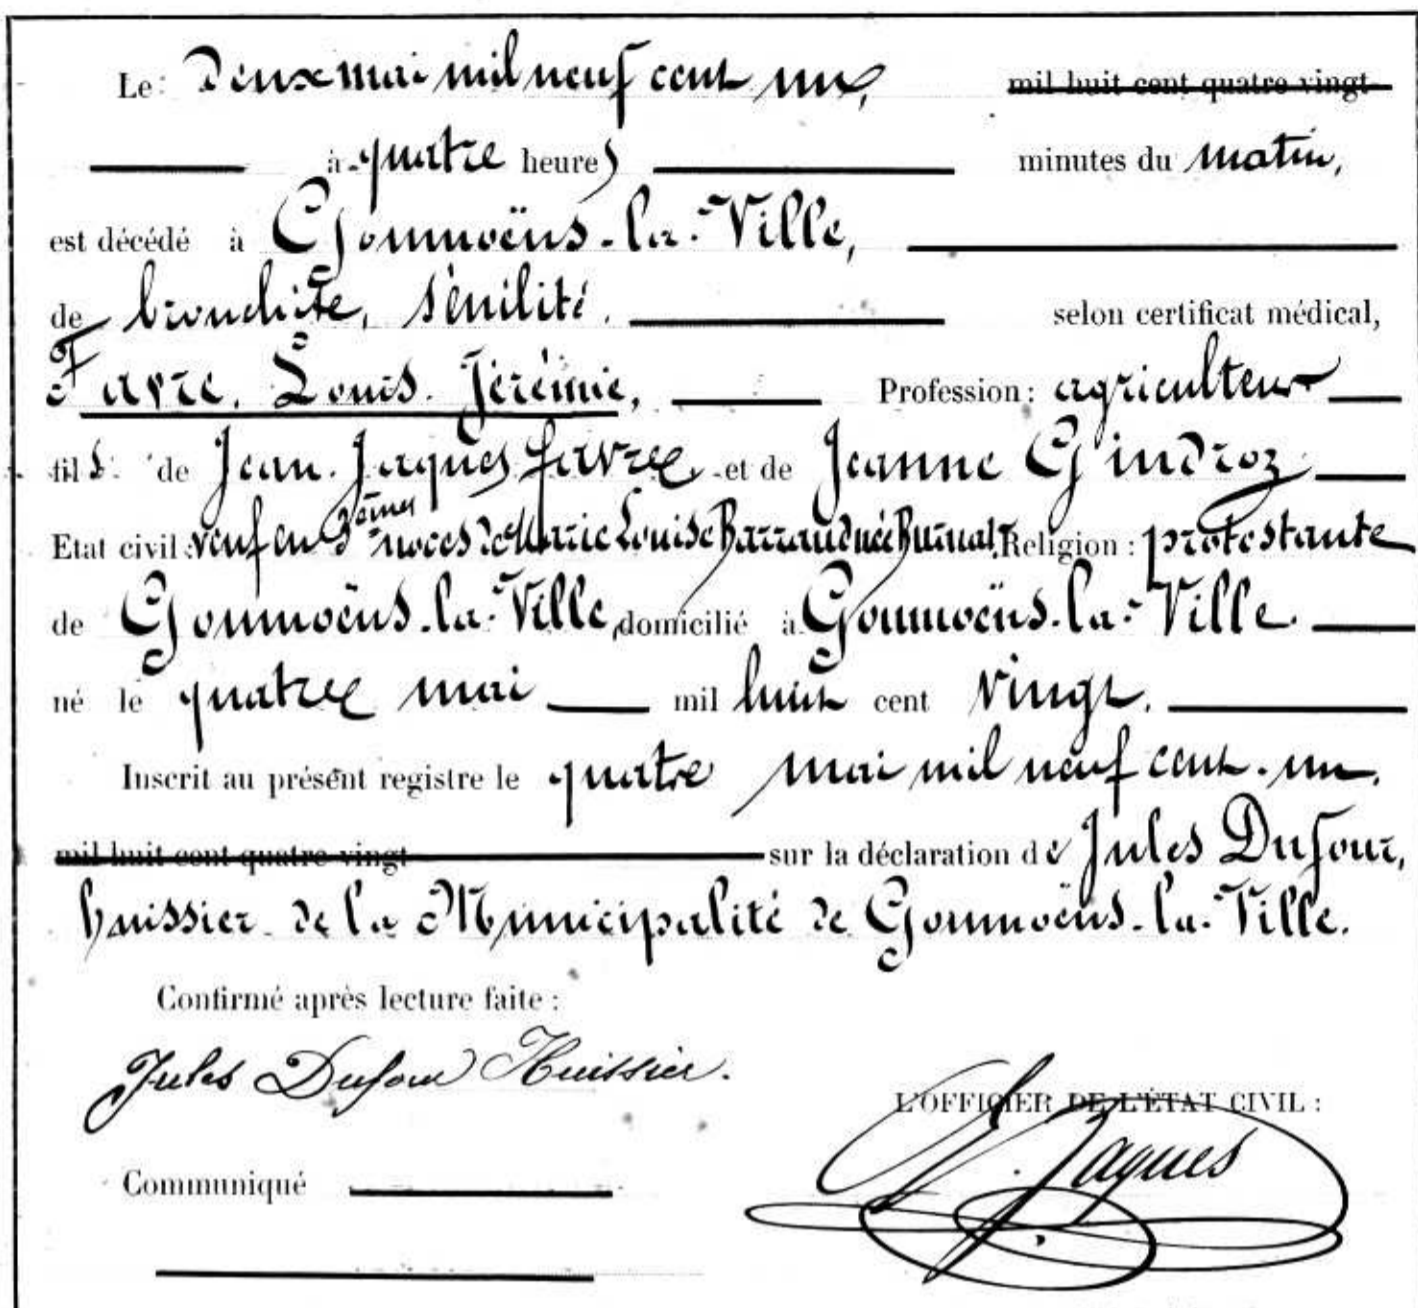 Le: Deux mai mil neuf cent un, mil huit cent quatre vingt
à quatre heures minutes du matin,
est décédé à Goumoëns-la-Ville,
de bronchite, sénilité. selon certificat médical,
Favre, Louis-Jérémie, Profession: agriculteur
fils de Jean-Jaques Favre et de Jeanne Gindroz
Etat civil: veuf en 2èmes noces de Marie Louise Barraud née Burnat, Religion: protestante
de Goumoëns-la-Ville, domicilié à Goumoëns-la-Ville.
né le quatre mai mil huit cent vingt.
Inscrit au présent registre le quatre mai mil neuf cent-un.
mil huit cent quatre vingt sur la déclaration de Jules Dufour,
huissier de la Municipalité de Goumoëns-la-Ville.
Confirmé après lecture faite :
Jules Dufour Huissier.
L'OFFICIER DE L'ÉTAT CIVIL :
Jaques
Communiqué